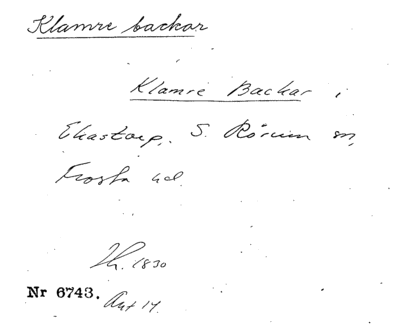 Klamre backar
Klamre Backar i
Ekastorp, S. Rörum sn,
Frosta hd.
Th. 1830
Nr 6743. Ant 14.